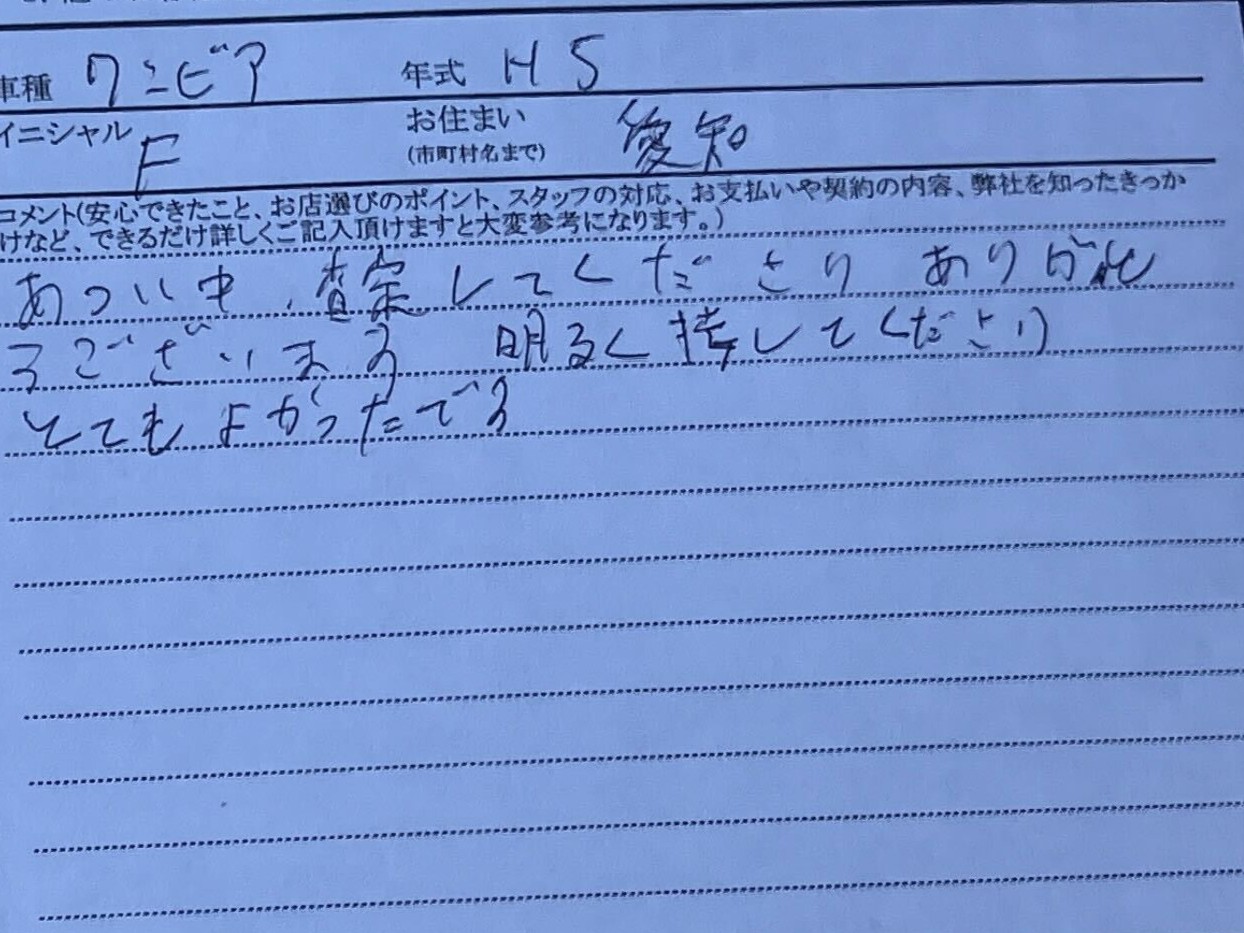 車種 ワンビア 年式 H5
イニシャル F お住まい(市町村名まで) 愛知
コメント(安心できたこと、お店選びのポイント、スタッフの対応、お支払いや契約の内容、弊社を知ったきっか
けなど、できるだけ詳しくご記入頂けますと大変参考になります。)
あつい中、査定してくださり ありがと
うございます 明るく接してくださり
とてもよかったです